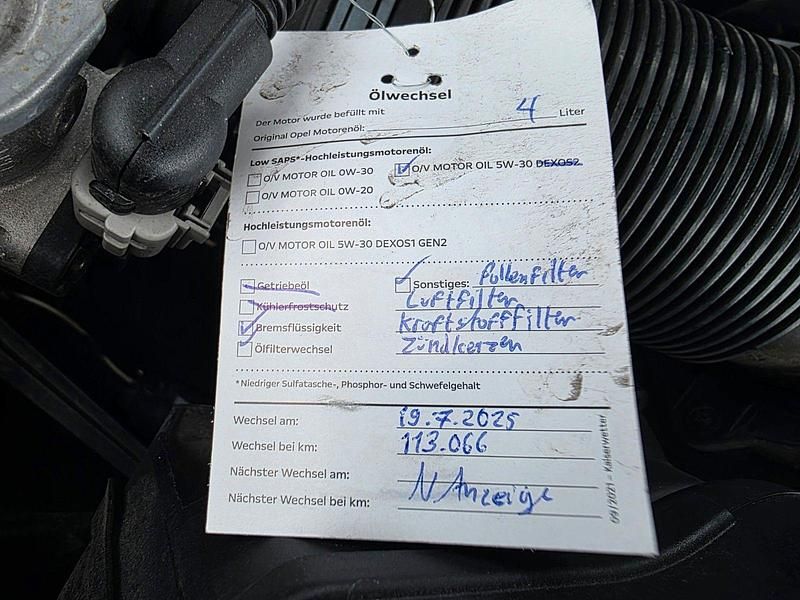 Ölwechsel
Der Motor wurde befüllt mit 4 Liter
Original Opel Motorenöl:
Low SAPS*-Hochleistungsmotorenöl:
O/V MOTOR OIL 0W-30 O/V MOTOR OIL 5W-30 DEXOS2
O/V MOTOR OIL 0W-20
Hochleistungsmotorenöl:
O/V MOTOR OIL 5W-30 DEXOS1 GEN2
Getriebeöl Sonstiges: Pollenfilter
Kühlerfrostschutz Luftfilter
Bremsflüssigkeit Kraftstofffilter
Ölfilterwechsel Zündkerzen
*Niedriger Sulfatasche-, Phosphor- und Schwefelgehalt
Wechsel am: 19.7.2025
Wechsel bei km: 113.066
Nächster Wechsel am: N Anzeige
Nächster Wechsel bei km:
09/2021 – Kaiserwetter